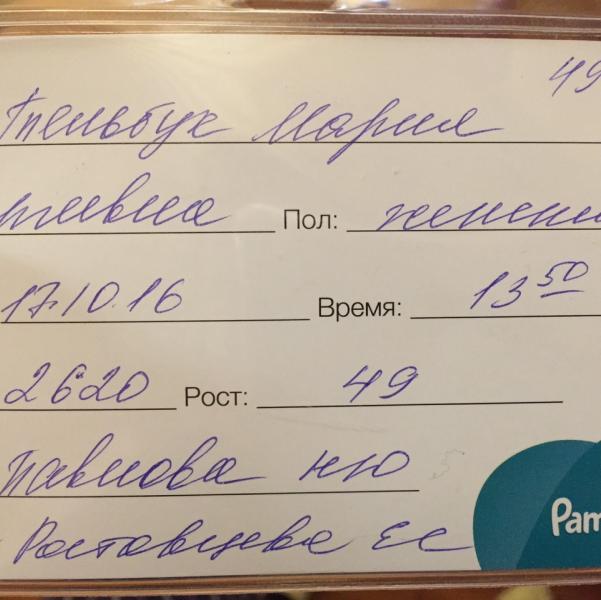 49
Тельбух Мария
Пол: женский
17.10.16 Время: 13 50
2620 Рост: 49
Павлова НЮ
Ростовцева ЕС
Pam